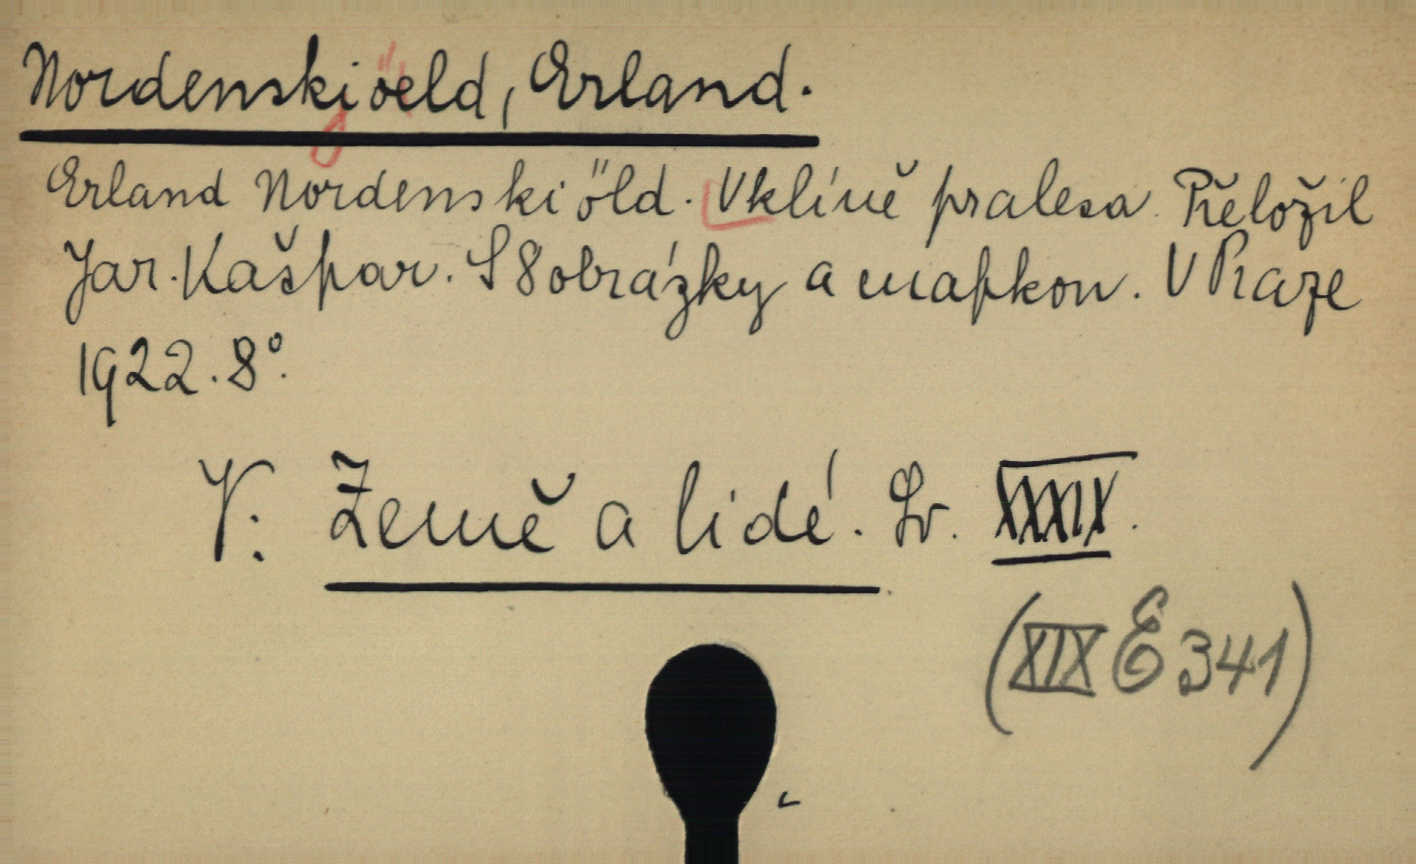 Nordenskiöeld, Erland.
Erland Nordenskiöld. V klíně pralesa. Přeložil
Jar. Kašpar. S 8 obrázky a mapkou. V Praze
1922. 8°.
V: Země a lidé. Sv. XXXIX.
(XIX E 341)